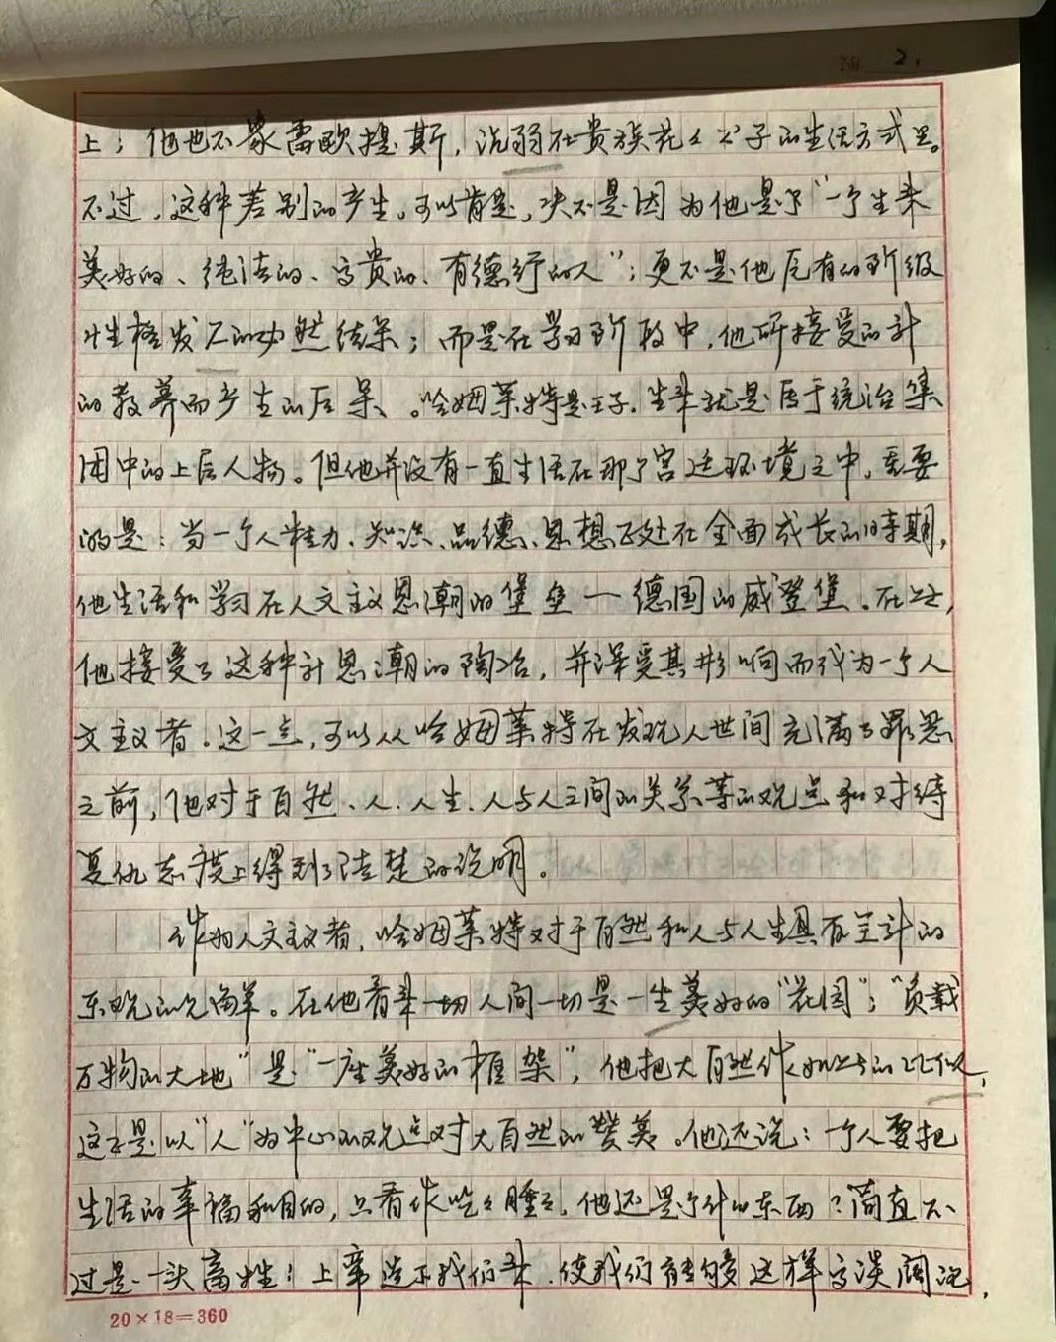 № 2.
上；他也不象雷欧提斯，沉溺在贵族花々公子的生活方式里。
不过，这种差别的产生，可以肯定，决不是因为他是个“一个生来
美好的、纯洁的、高贵的、有德行的人”；更不是他固有的阶级
性格发展的必然结果；而是在学习阶段中，他所接受的新
的教养而产生的后果。哈姆莱特是王子，生来就是属于统治集
团中的上层人物。但他并没有一直生活在那个宫廷环境之中，重要
的是：当一个人精力、知识、品德、思想正处在全面成长的时期，
他生活和学习在人文主义思潮的堡垒—德国的威登堡。在这，
他接受了这种新思潮的陶冶，并深受其影响而成为一个人
文主义者。这一点，可以从哈姆莱特在发现人世间充满了罪恶
之前，他对于自然、人、人生、人与人之间的关系等的观点和对待
复仇态度上得到了清楚的说明。
作为人文主义者，哈姆莱特对于自然和人与人生具有全新的
乐观的见解。在他看来一切人间一切是一座美好的“花园”；“负载
万物的大地”是“一座美好的框架”，他把大自然作如此的比似，
这正是以“人”为中心的观点对大自然的赞美。他还说：一个人要把
生活的幸福和目的，只看作吃々睡々，他还是个什么东西？简直不
过是一头畜牲！上帝造下我们来，使我们能够这样高谈阔论，
20×18=360